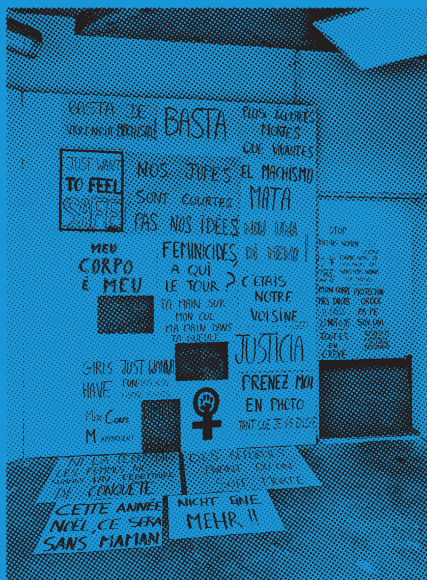 BASTA DE
VIOLENCIA MACHISTA!
BASTA
PLUS ÉCOUTÉES
MORTES
QUE VIVANTES
JUST WANT
TO FEEL
SAFE
NOS JUPES
SONT COURTES
PAS NOS IDÉES
EL MACHISMO
MATA
NON UNA
DI MENO
MEU
CORPO
É MEU
FEMINICIDES,
A QUI
LE TOUR ?
C'ÉTAIS
NOTRE
VOISINE...
TA MAIN SUR
MON CUL
MA MAIN DANS
TA GUEULE
JUSTICIA
GIRLS JUST WANNA
HAVE FUN
PRENEZ MOI
EN PHOTO
TANT QUE JE
MON CORPS
M'APPARTIENT
STOP
MON CORPS
MES DROITS
TOUTES
EN
GRÈVE
PROTECTION
ORDER
NI LA TERRE NI
LES FEMMES NE
TERRITOIRE
DE CONQUÊTE
DES RÉFORMES
AVANT QU'ON
SOIT MORTE
CETTE ANNÉE
NOËL, CE SERA
SANS MAMAN
NICHT EINE
MEHR !!